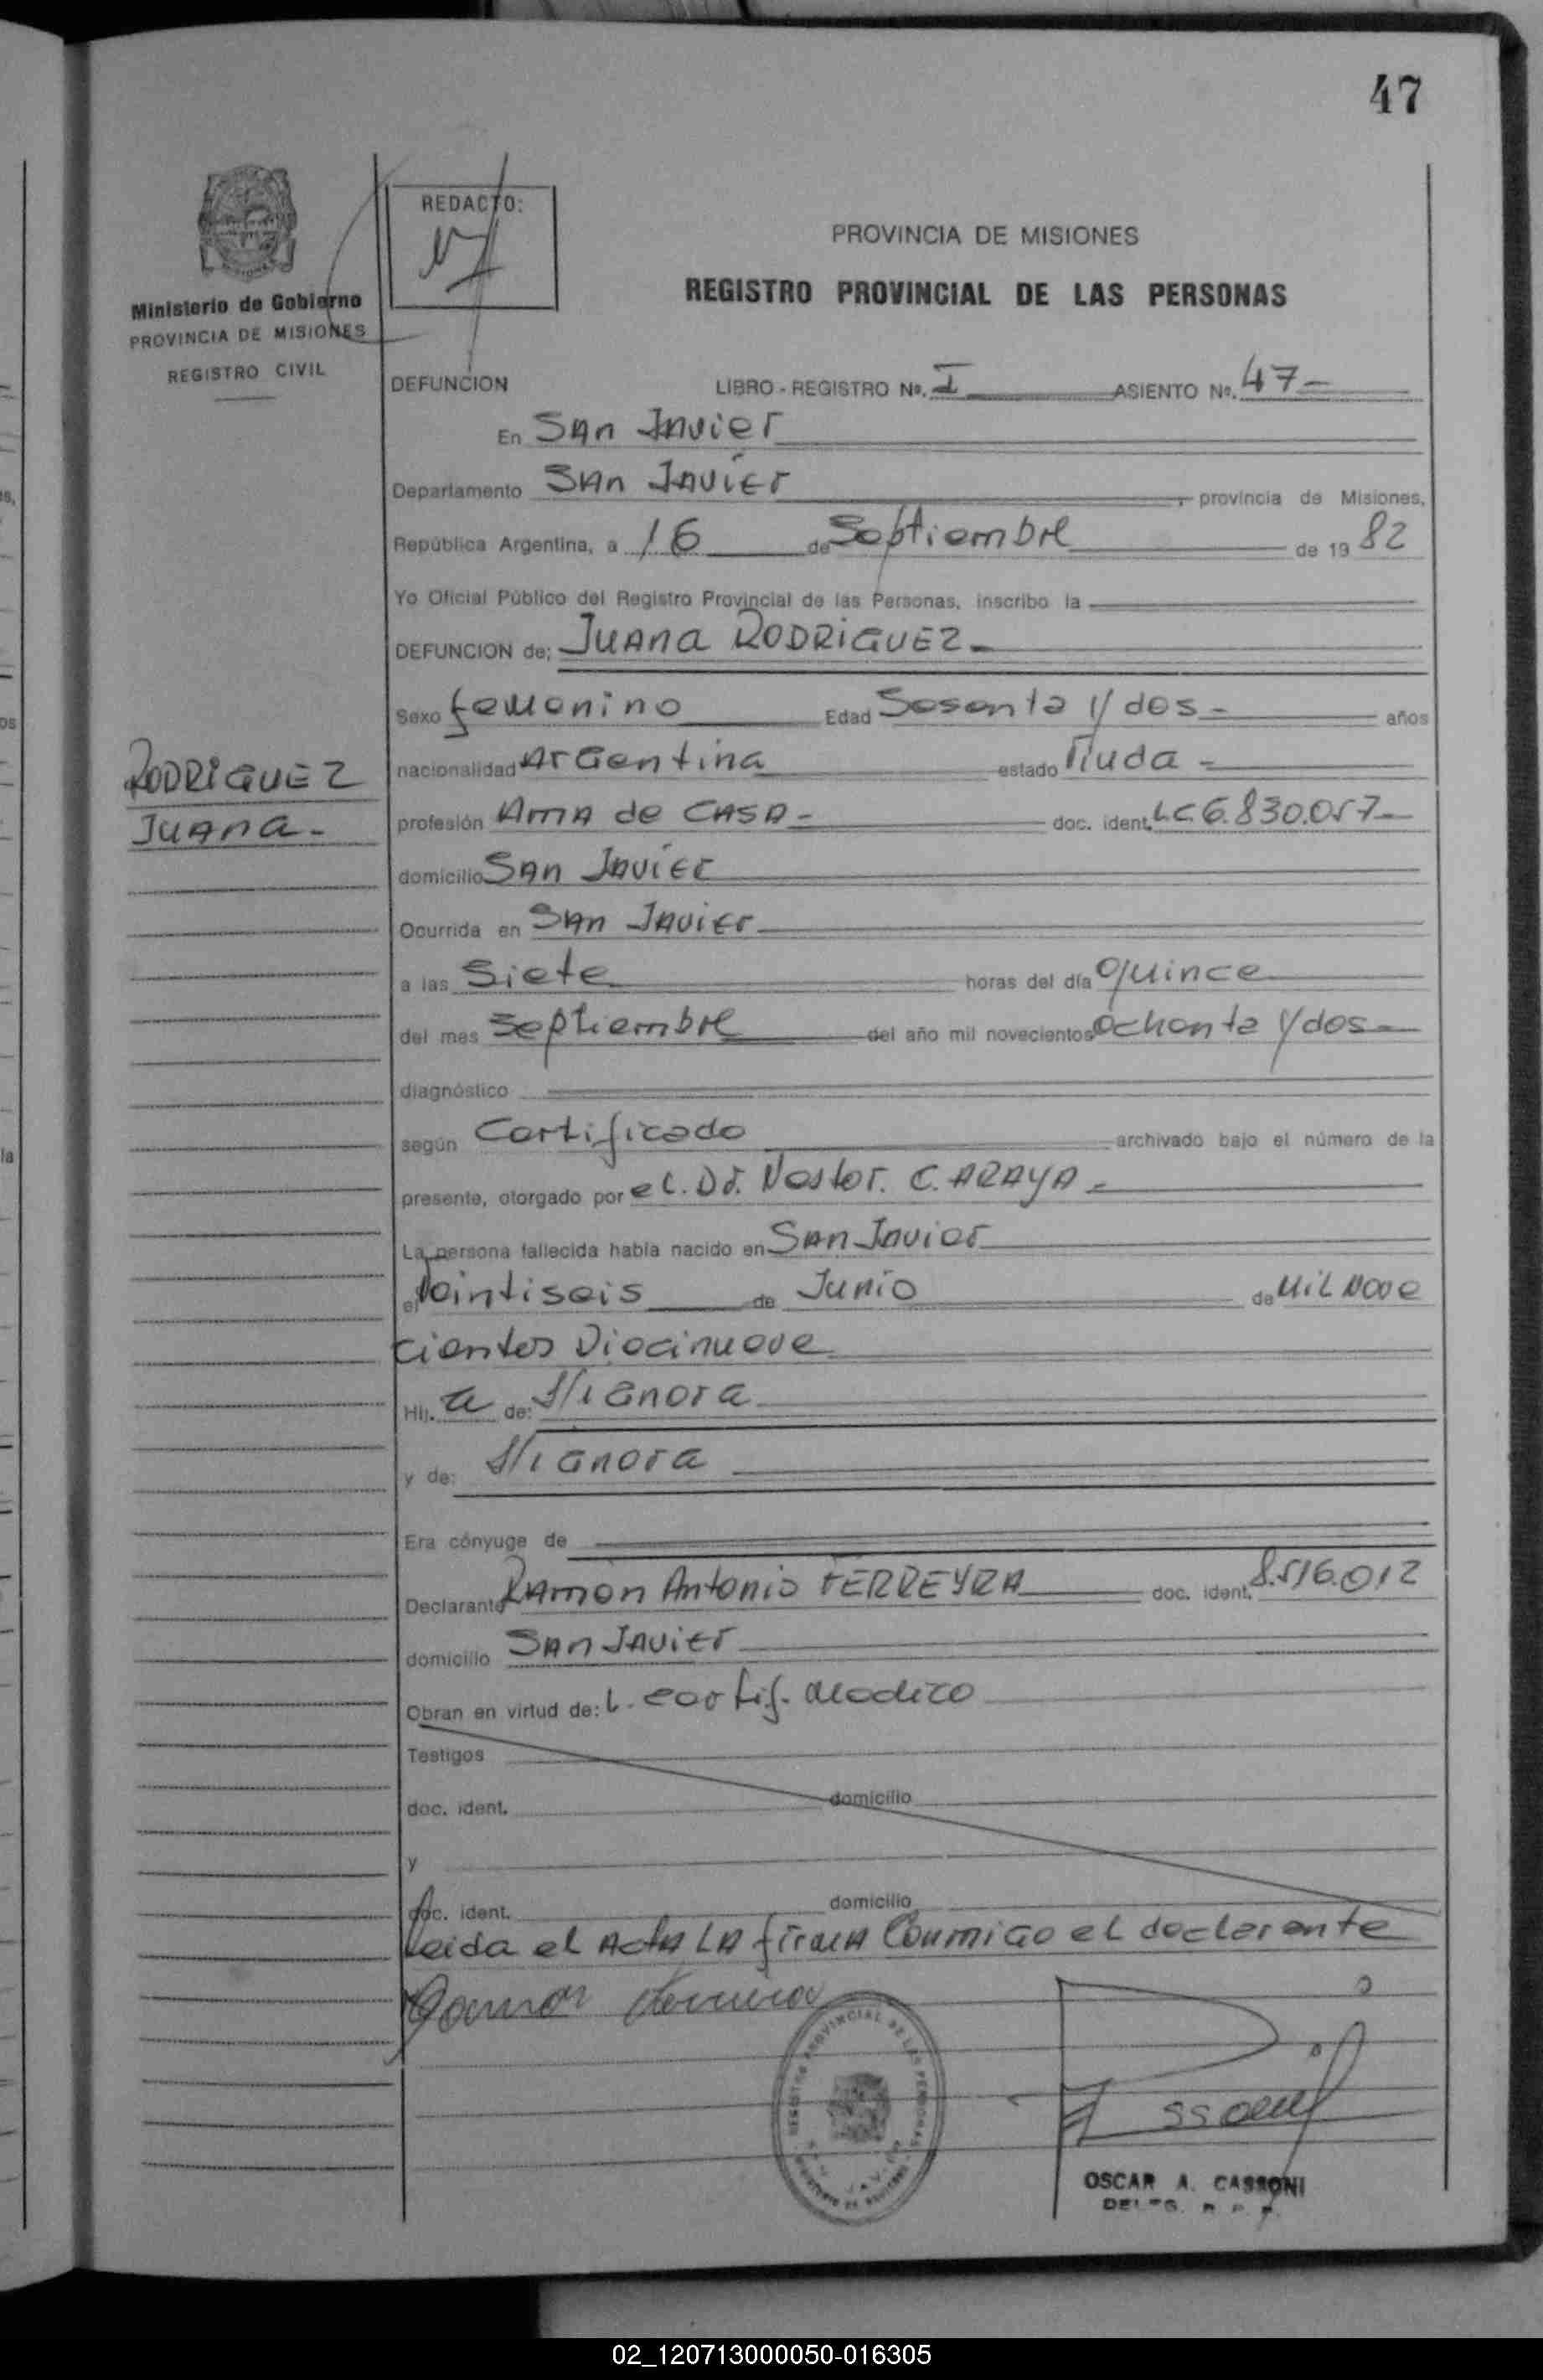 47
REDACTO:
PROVINCIA DE MISIONES
REGISTRO PROVINCIAL DE LAS PERSONAS
Ministerio de Gobierno
PROVINCIA DE MISIONES
REGISTRO CIVIL
DEFUNCION LIBRO - REGISTRO No. I ASIENTO No. 47-
En San Javier
Departamento San Javier, provincia de Misiones,
República Argentina, a 16 de Septiembre de 1982
Yo Oficial Público del Registro Provincial de las Personas, inscribo la
DEFUNCION de: Juana RODRIGUEZ-
Sexo femenino Edad Sesenta y dos- años
RODRIGUEZ
Juana-
nacionalidad Argentina estado Viuda -
profesión Ama de CASA- doc. ident. LC 6.830.057-
domicilio San Javier
Ocurrida en San Javier
a las Siete horas del día quince
del mes septiembre del año mil novecientos ochenta y dos-
diagnóstico
según Certificado archivado bajo el número de la
presente, otorgado por el. Dr. Nestor. C. ARAYA-
La persona fallecida había nacido en San Javier
el Veintiseis de Junio de Mil Nove
cientos Diecinueve
Hij. a de:
y de:
Era cónyuge de
Declarante Ramon Antonio FERREYRA doc. ident. 8.516.012
domicilio San Javier
Obran en virtud de: L. certif. Medico
Testigos
doc. ident. domicilio
y
doc. ident. domicilio
Leida el Acta LA firma Conmigo el declarante
OSCAR A. CASSONI
DELEG. R. P. P.
02_120713000050-016305